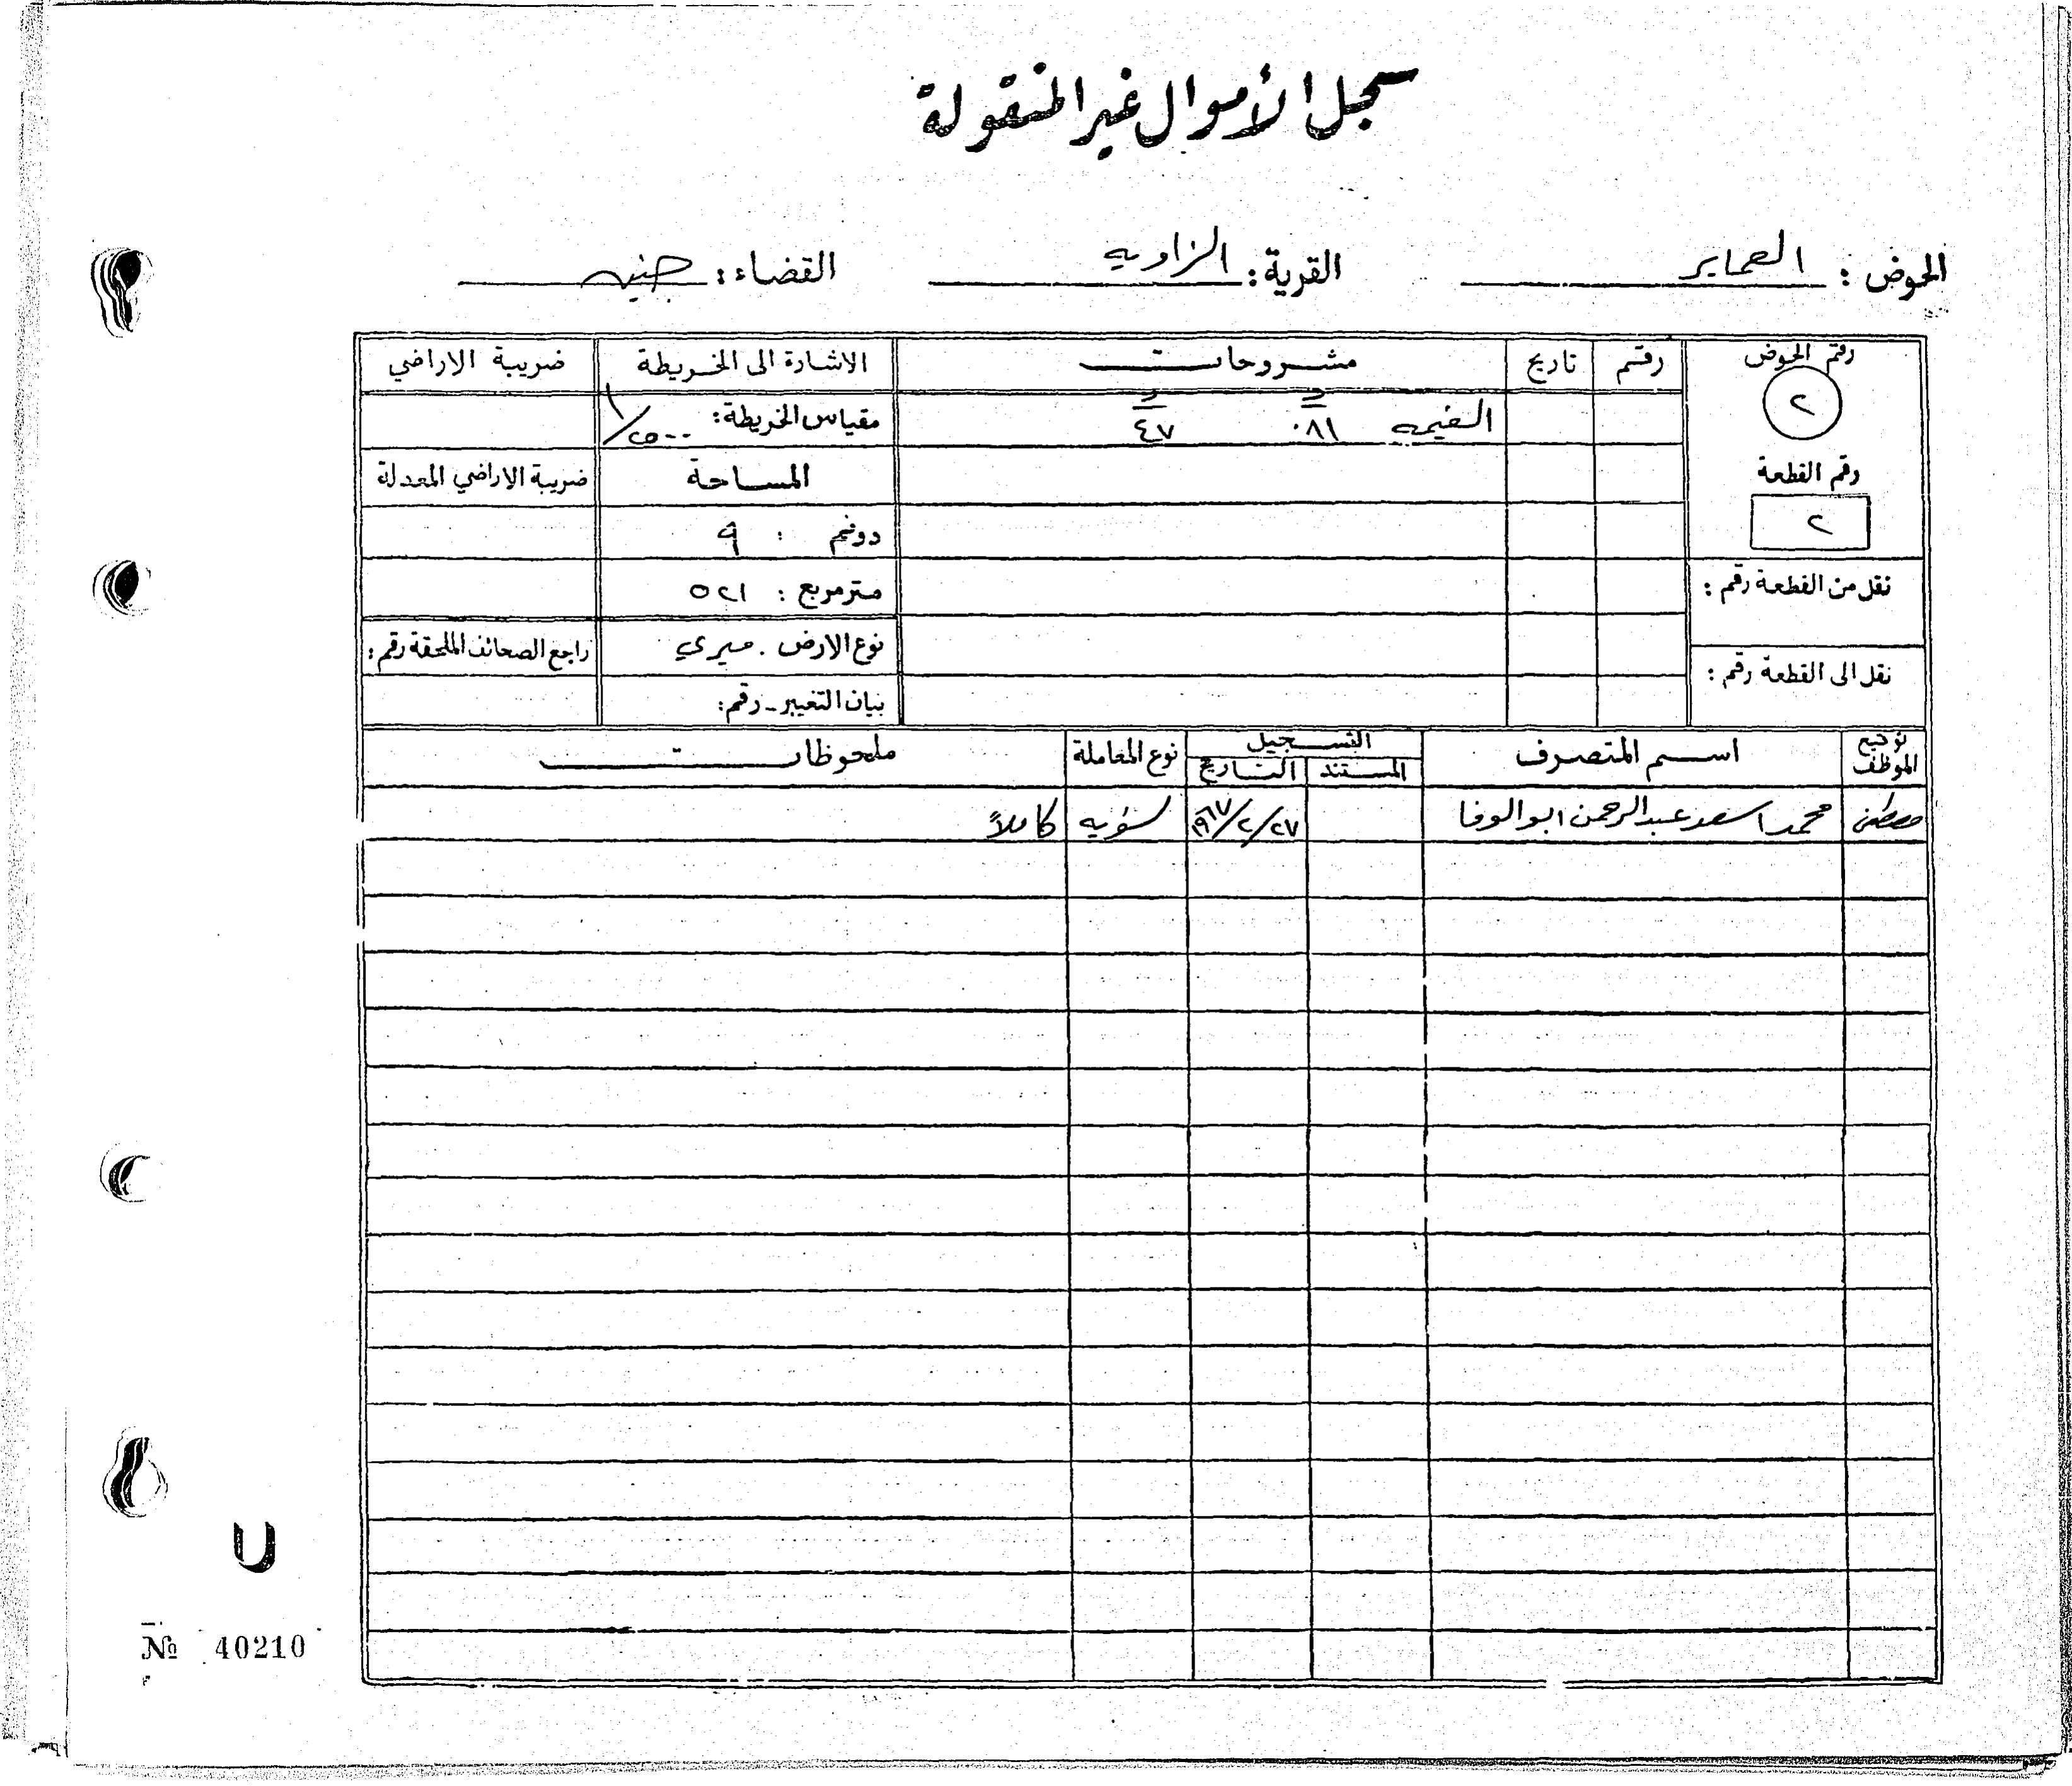 سجل الأموال غير المنقولة
الحوض : العماير القرية : الزاويه القضاء : جنين
رقم الحوض رقم تاريخ مشروحات الاشارة الى الخريطة ضريبة الاراضي
٢ القيمه ٠٨١ د ٤٧ د مقياس الخريطة : ١/٢٥٠٠
رقم القطعة المساحة ضريبة الاراضي المعدلة
٢ دونم : ٩
نقل من القطعة رقم : متر مربع : ٥٢١
نوع الارض . ميري راجع الصحائف الملحقة رقم :
نقل الى القطعة رقم : بيان التغيير - رقم :
توقيع الموظف اسم المتصرف التسجيل نوع المعاملة ملحوظات
المستند التاريخ
مصطفى محمد اسعد عبد الرحمن ابو الوفا ٢٧/٢/١٩٦٧ تسويه كاملاً
№ 40210